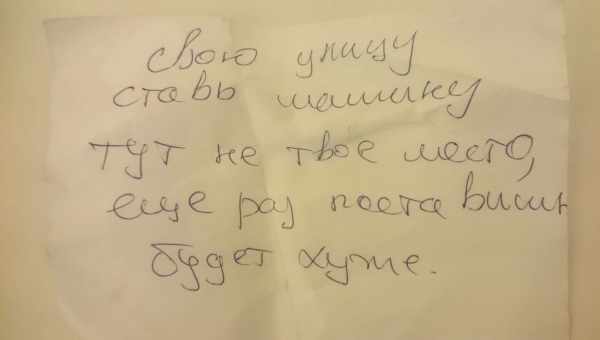 свою улицу
ставь машинку
тут не твое место,
еще раз поставишь
будет хуже.